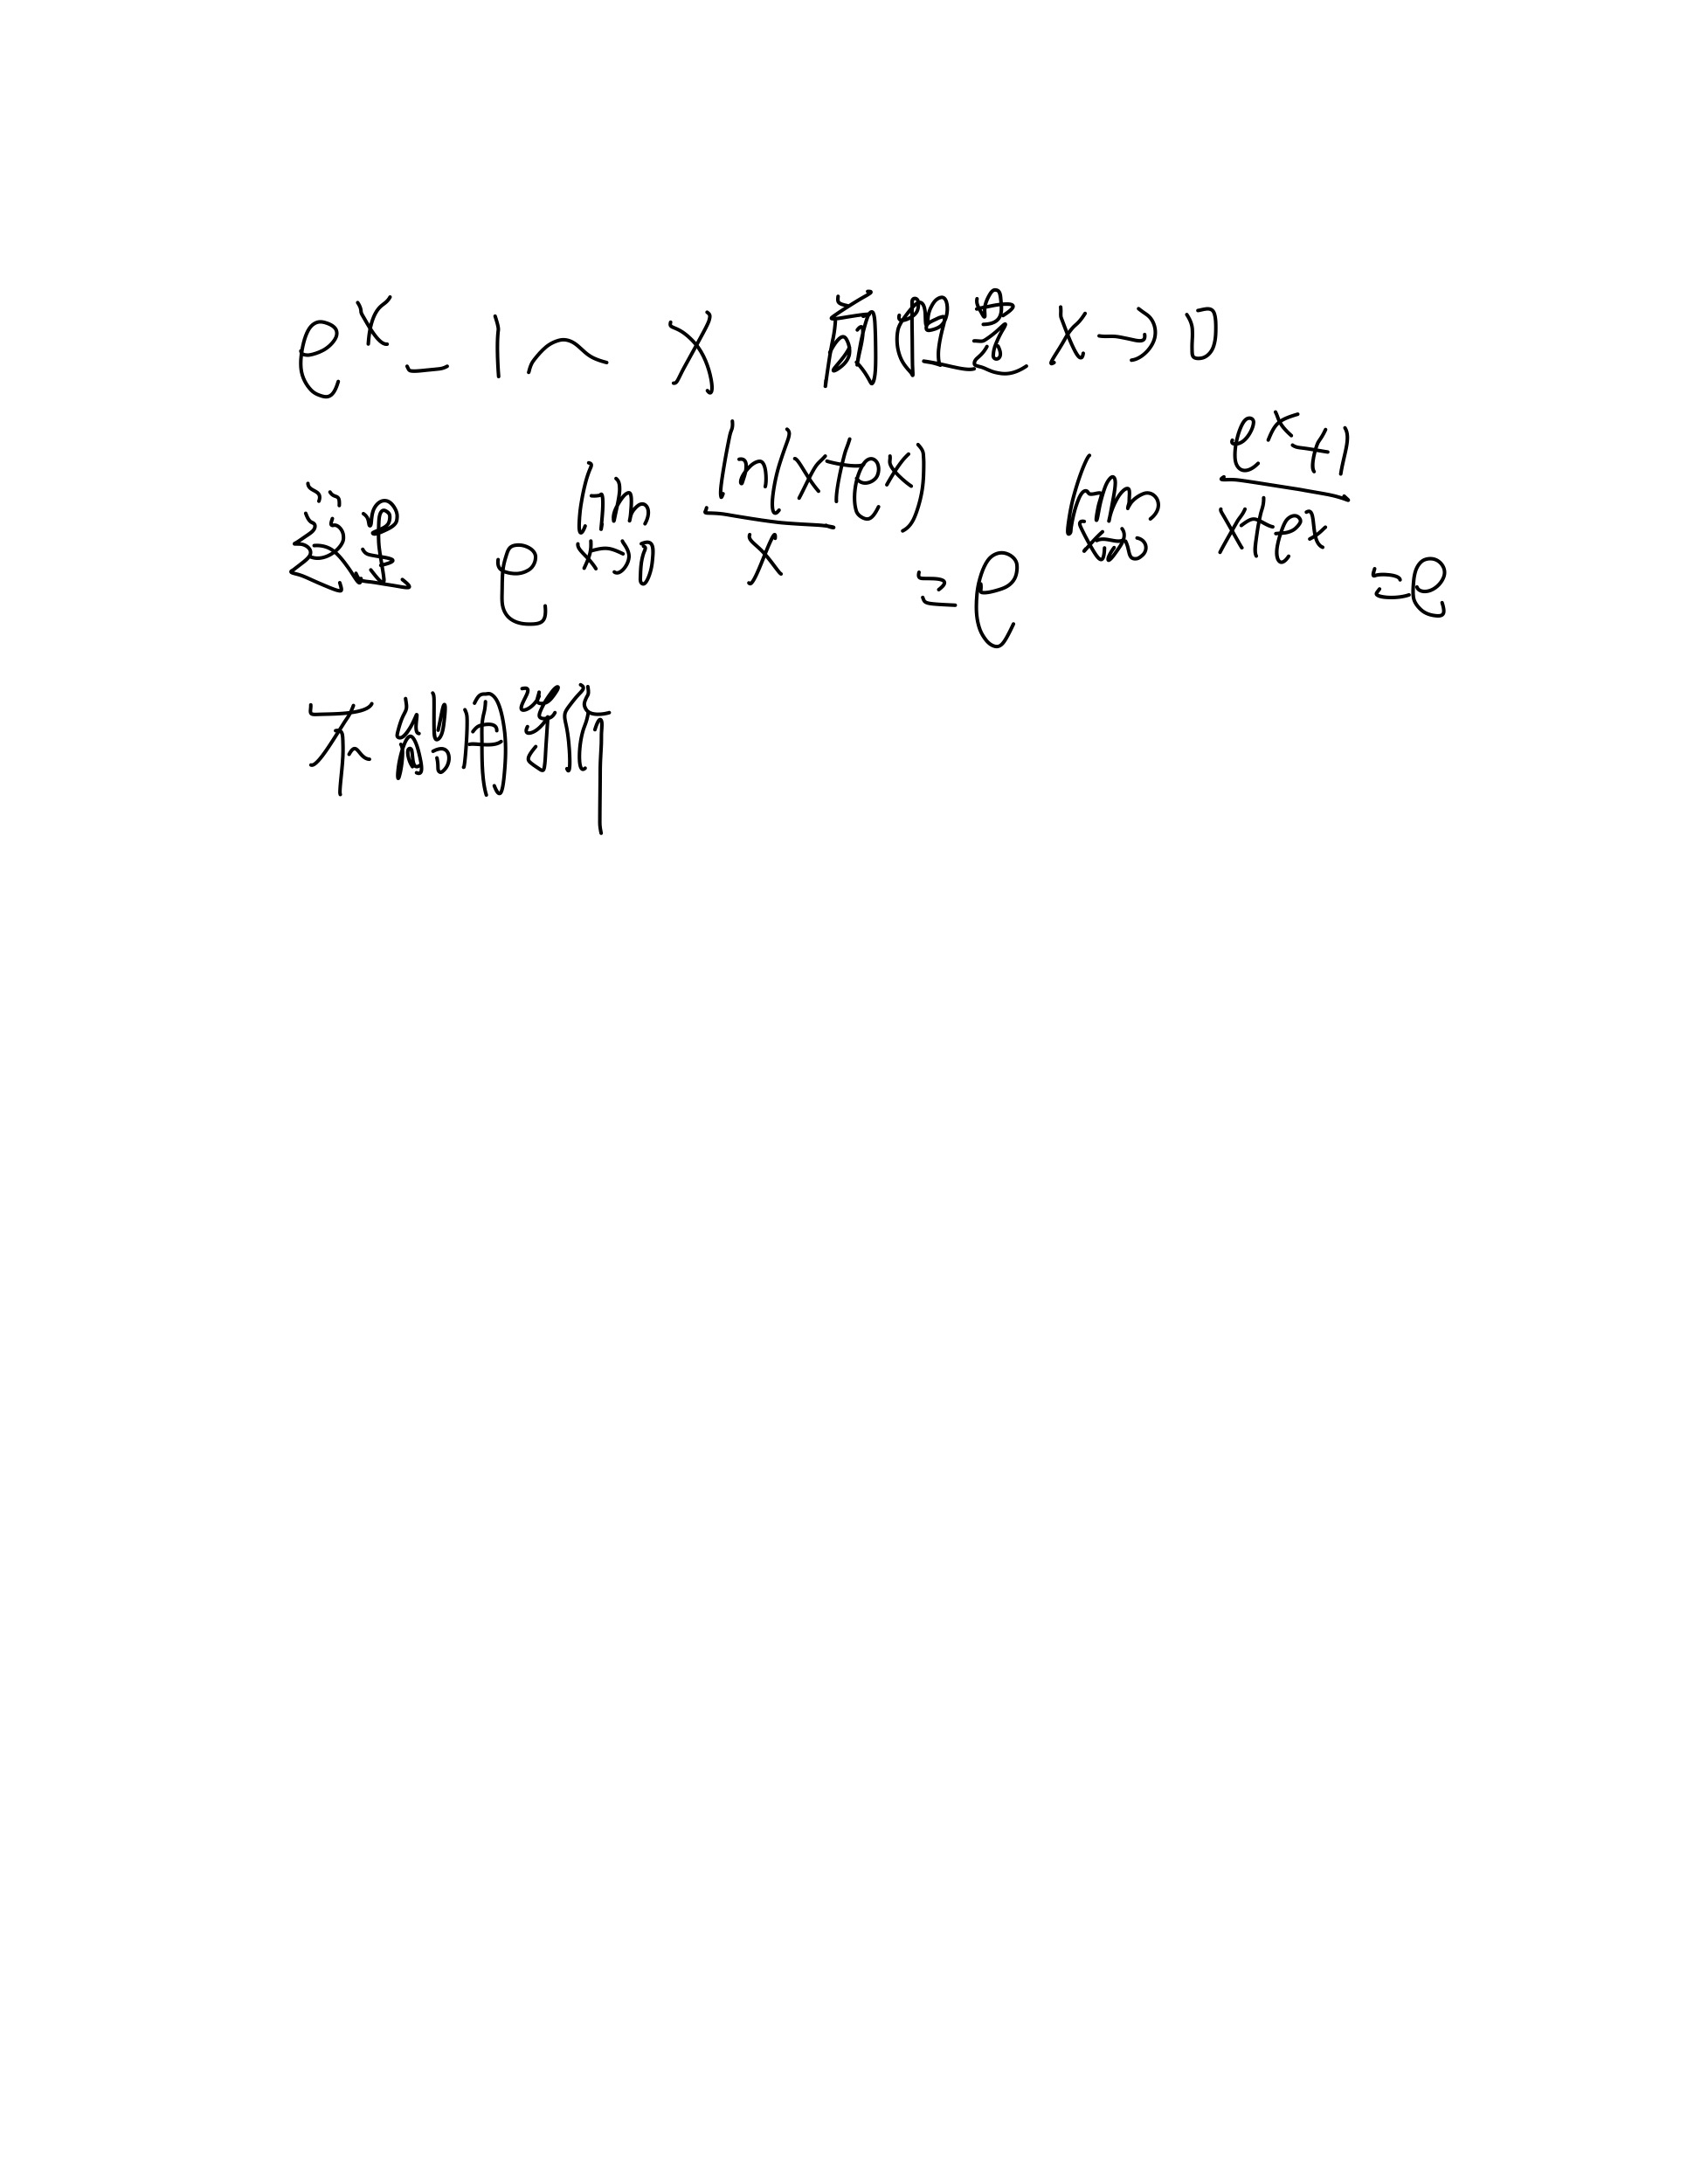 e^x - 1 ~ x 前提是 x→0
这题 e^{lim_{x→0} ln(x+e^x)/x} = e^{lim_{x→∞} (e^x+1)/(x+e^x)} = e
不能用等价